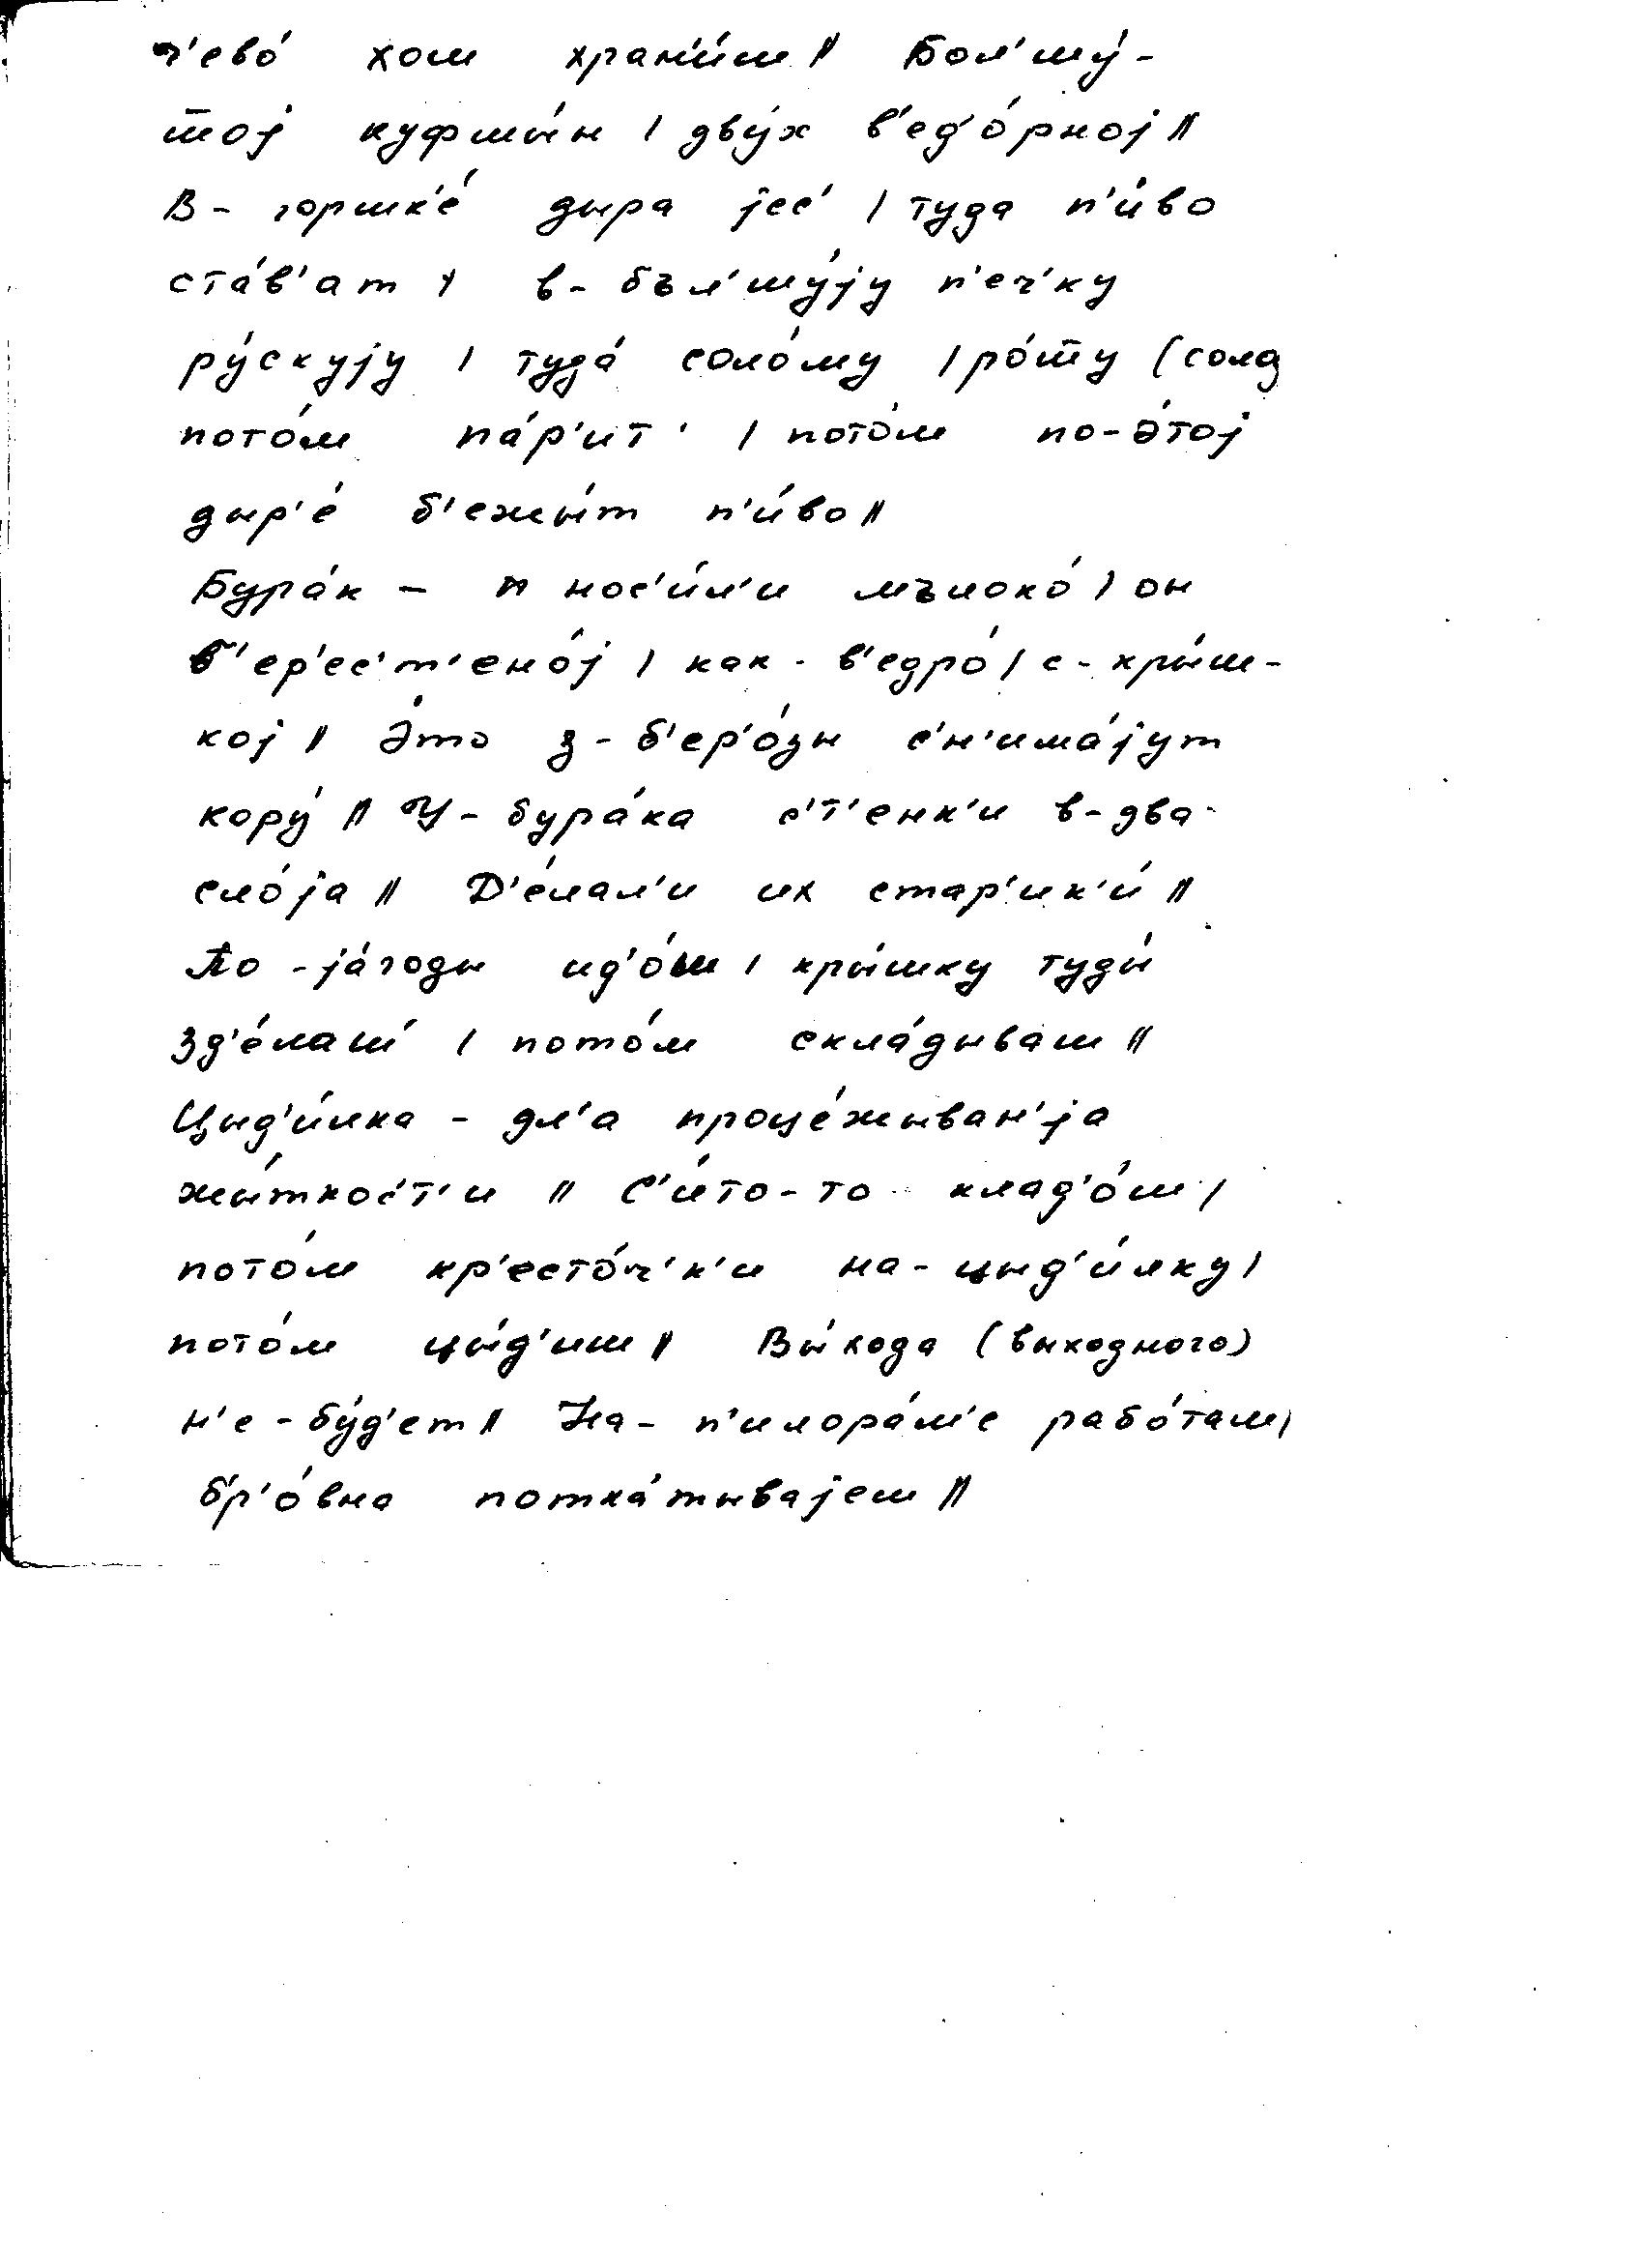 ч'ево́ хош хран'и́ш || Бол'шу́-
шој куфшы́н | дву́х в'ед'о́рној ||
В- горшк'е́ дыра јес' | туда п'и́во
ста́в'ат | в- бъл'шу́ју п'еч'ку
ру́скују | туда́ соло́му | ро́шу (солд
пото́м па́р'ит' | пото́м по-э́тој
дыр'е́ б'ежы́т п'и́во ||
Бура́к – нос'и́л'и мълоко́ | он
б'ер'ес'т'ено́ј | как - в'едро́ | с- кры́ш-
кој || Э́то з- б'ер'о́зы с'н'има́јут
кору́ || У- бура́ка с'т'енк'и в-два
сло́ја || Д'е́лал'и их стар'ик'и́ ||
По -ја́годы ид'о́ш | кры́шку туды́
зд'е́лаш | пото́м скла́дываш ||
Цыд'и́лка - дл'а процэ́жыван'ја
жы́ткос'т'и || С'и́то-то клад'о́ш |
пото́м кр'есто́ч'к'и на- цыд'и́лку |
пото́м цы́д'иш || Вы́хода (выходного)
н'е -бу́д'ет || На- п'илора́м'е рабо́таш |
бр'о́вна потка́тывајеш ||